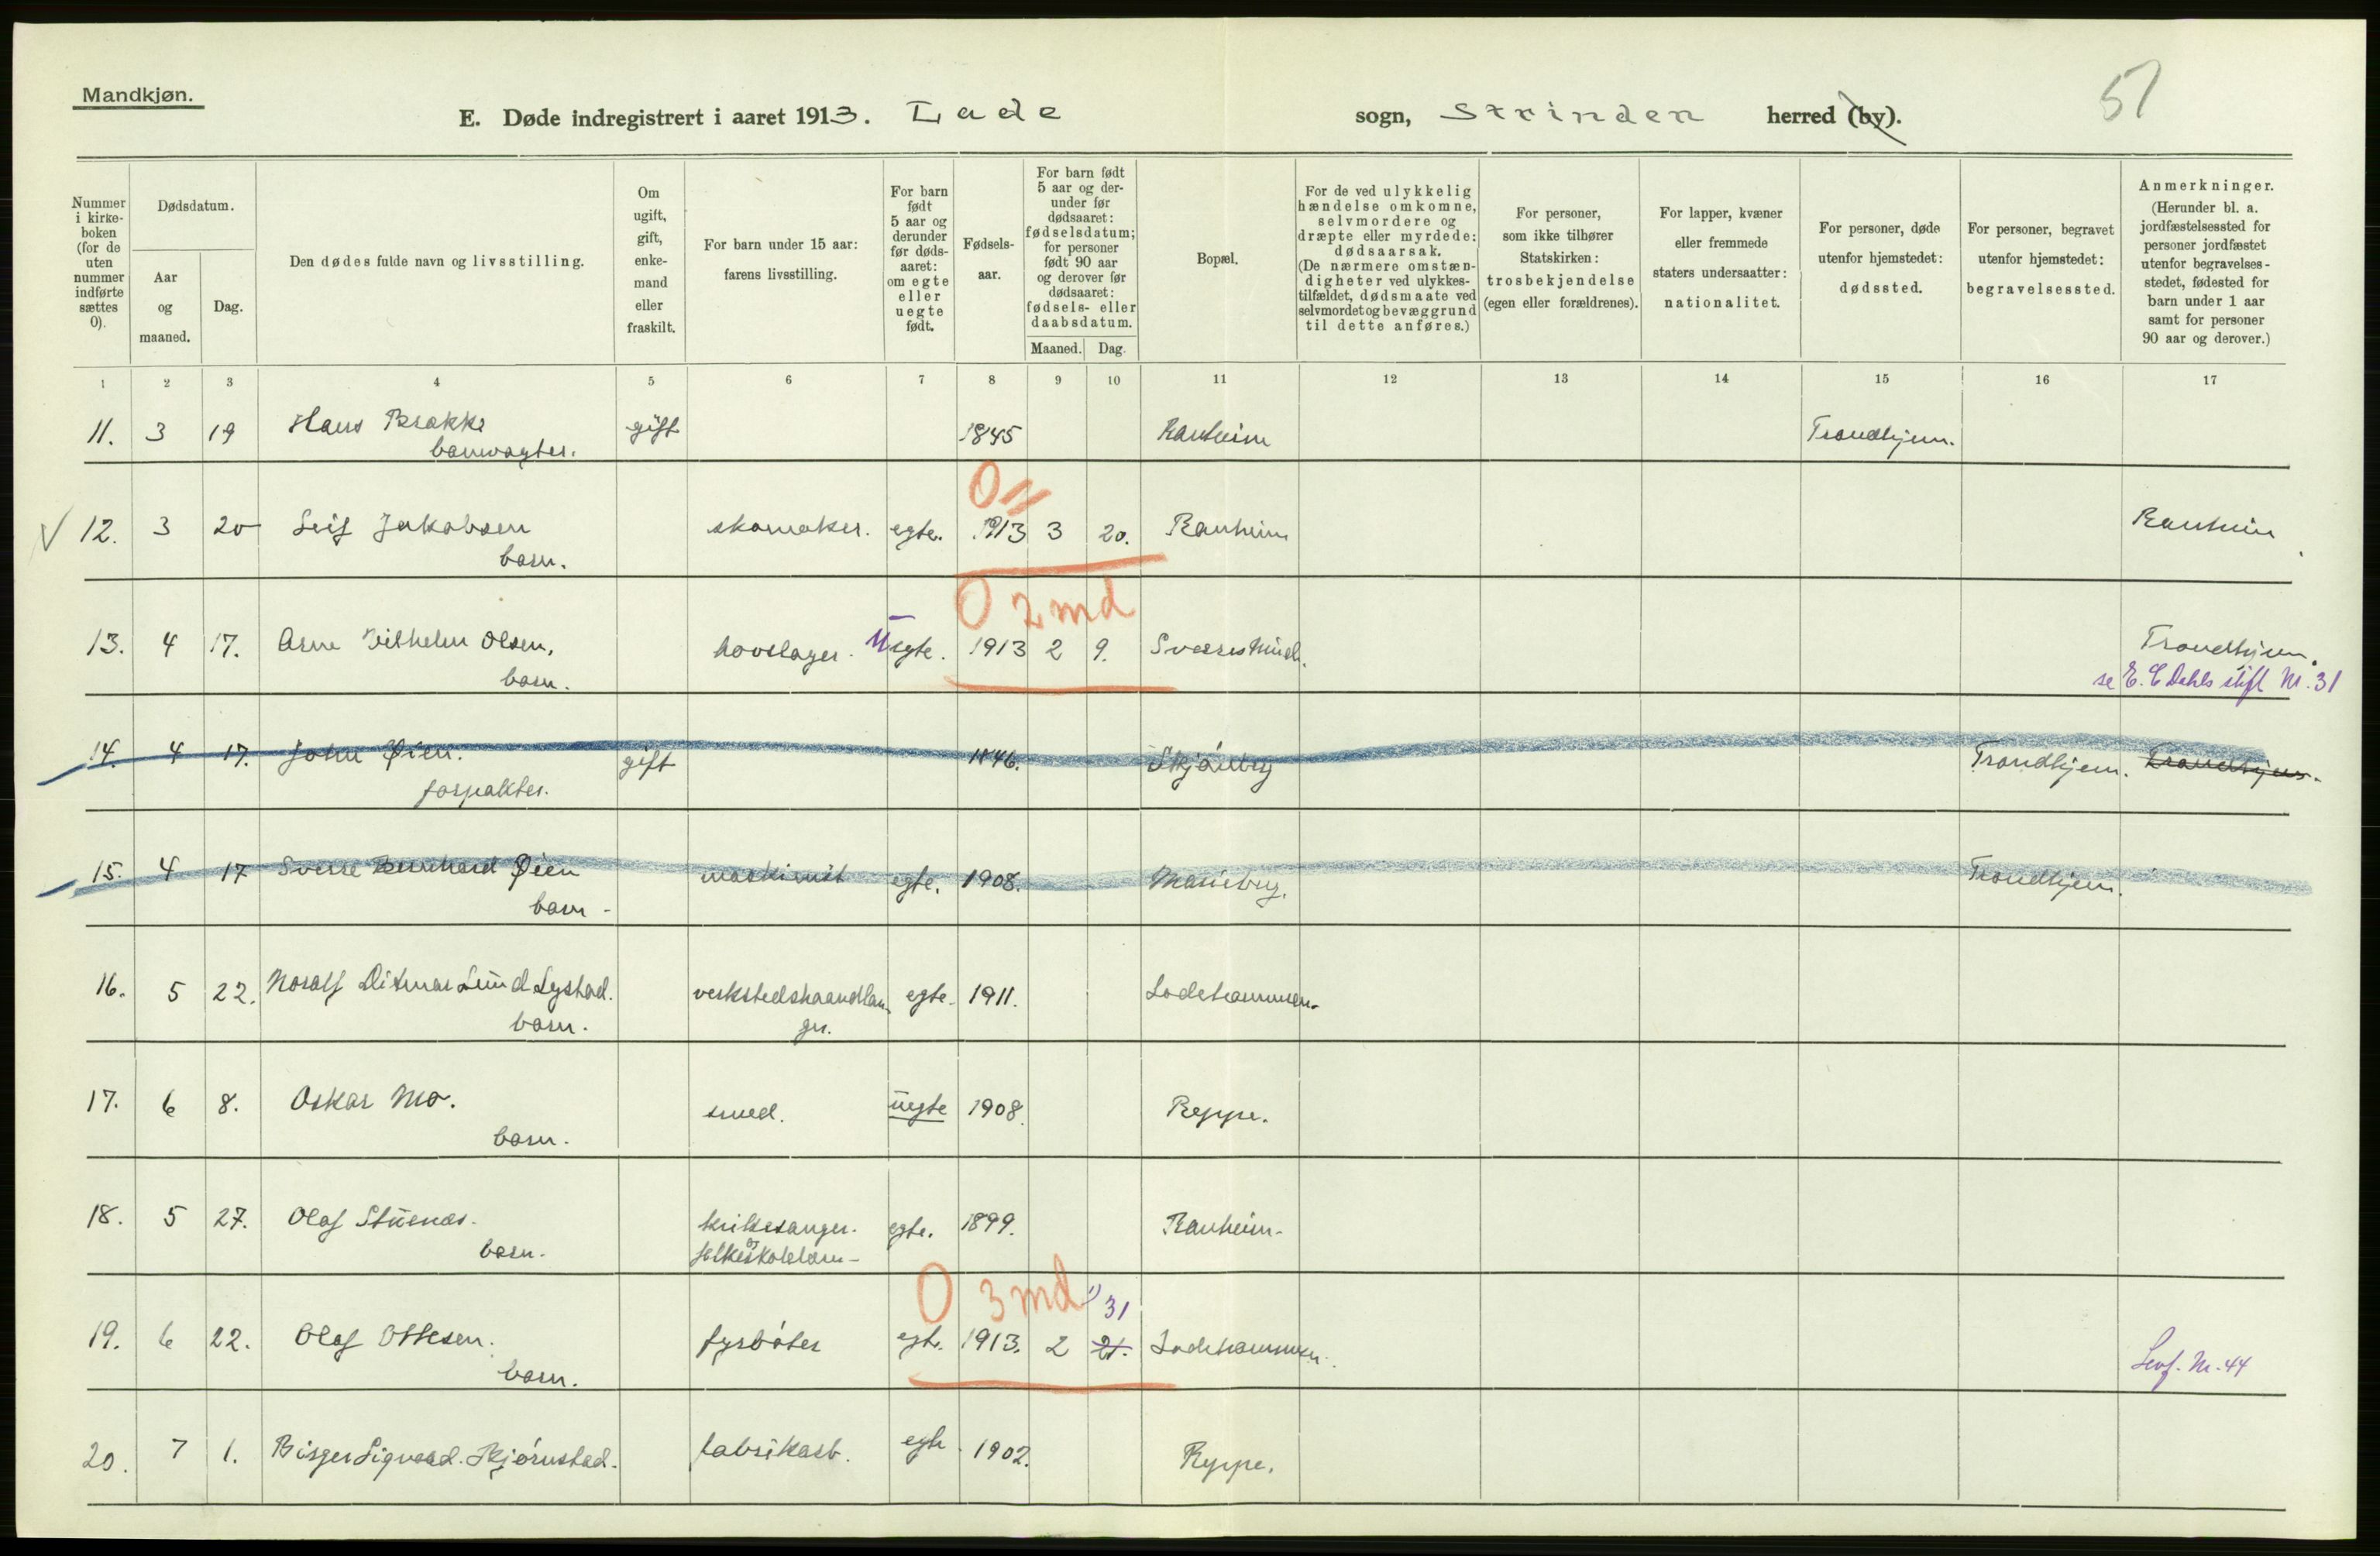 Mandkjøn.
E. Døde indregistrert i aaret 1913. Lade sogn, Strinden herred (by).
51
Nummer i kirke-boken (for de uten nummer indførte sættes 0).
Dødsdatum.
Aar og maaned.
Dag.
Den dødes fulde navn og livsstilling.
Om ugift, gift, enke-mand eller fraskilt.
For barn under 15 aar: farens livsstilling.
For barn født 5 aar og derunder før døds-aaret: om egte eller uegte født.
Fødsels-aar.
For barn født 5 aar og der-under før dødsaaret: fødselsdatum; for personer født 90 aar og derover før dødsaaret: fødsels- eller daabsdatum.
Maaned.
Dag.
Bopæl.
For de ved ulykkelig hændelse omkomne, selvmordere og dræpte eller myrdede: dødsaarsak. (De nærmere omstæn-digheter ved ulykkes-tilfældet, dødsmaate ved selvmordet og bevæggrund til dette anføres.)
For personer, som ikke tilhører Statskirken: trosbekjendelse (egen eller forældrenes).
For lapper, kvæner eller fremmede staters undersaatter: nationalitet.
For personer, døde utenfor hjemstedet: dødssted.
For personer, begravet utenfor hjemstedet: begravelsessted.
Anmerkninger. (Herunder bl. a. jordfæstelsessted for personer jordfæstet utenfor begravelses-stedet, fødested for barn under 1 aar samt for personer 90 aar og derover.)
1 2 3 4 5 6 7 8 9 10 11 12 13 14 15 16 17
11. 3 19 Hans Brække gift 1845 Ranheim Trondhjem.
banevagter.
0 11
V 12. 3 20 Leif Jakobsen skomaker. egte. 1913 3 20. Ranheim Ranheim
barn.
0 2 md
13. 4 17. Arne Vilhelm Olsen, hovslager. Uegte. 1913 2 9. Sverresminde. Trondhjem.
barn. se E. C Dahls stift Nr. 31
14. 4 17. John Øien. gift 1846. Skjønberg Trondhjem. Trondhjem.
forpakter.
15. 4 17 Sverre Bernhard Øien maskinist egte. 1908. Marieberg. Trondhjem.
barn
16. 5 22. Noralf Ditmar Lund Lystad. verkstedshaandlan- egte. 1911. Ladehammeren.
barn. ger.
17. 6 8. Oskar Mo. smed. uegte 1908. Reppe.
barn.
18. 5 27. Olaf Stuenæs. kirkesanger. egte. 1899. Ranheim.
barn. og folkeskolelærer
0 3 md 1) 31
19. 6 22. Olaf Ottesen. fyrbøter egte. 1913. 2 21. Ladehammeren.
barn. Levf. Nr. 44
20. 7 1. Birger Sigvard Skjørnstad. fabrikarb. egte 1902. Reppe.